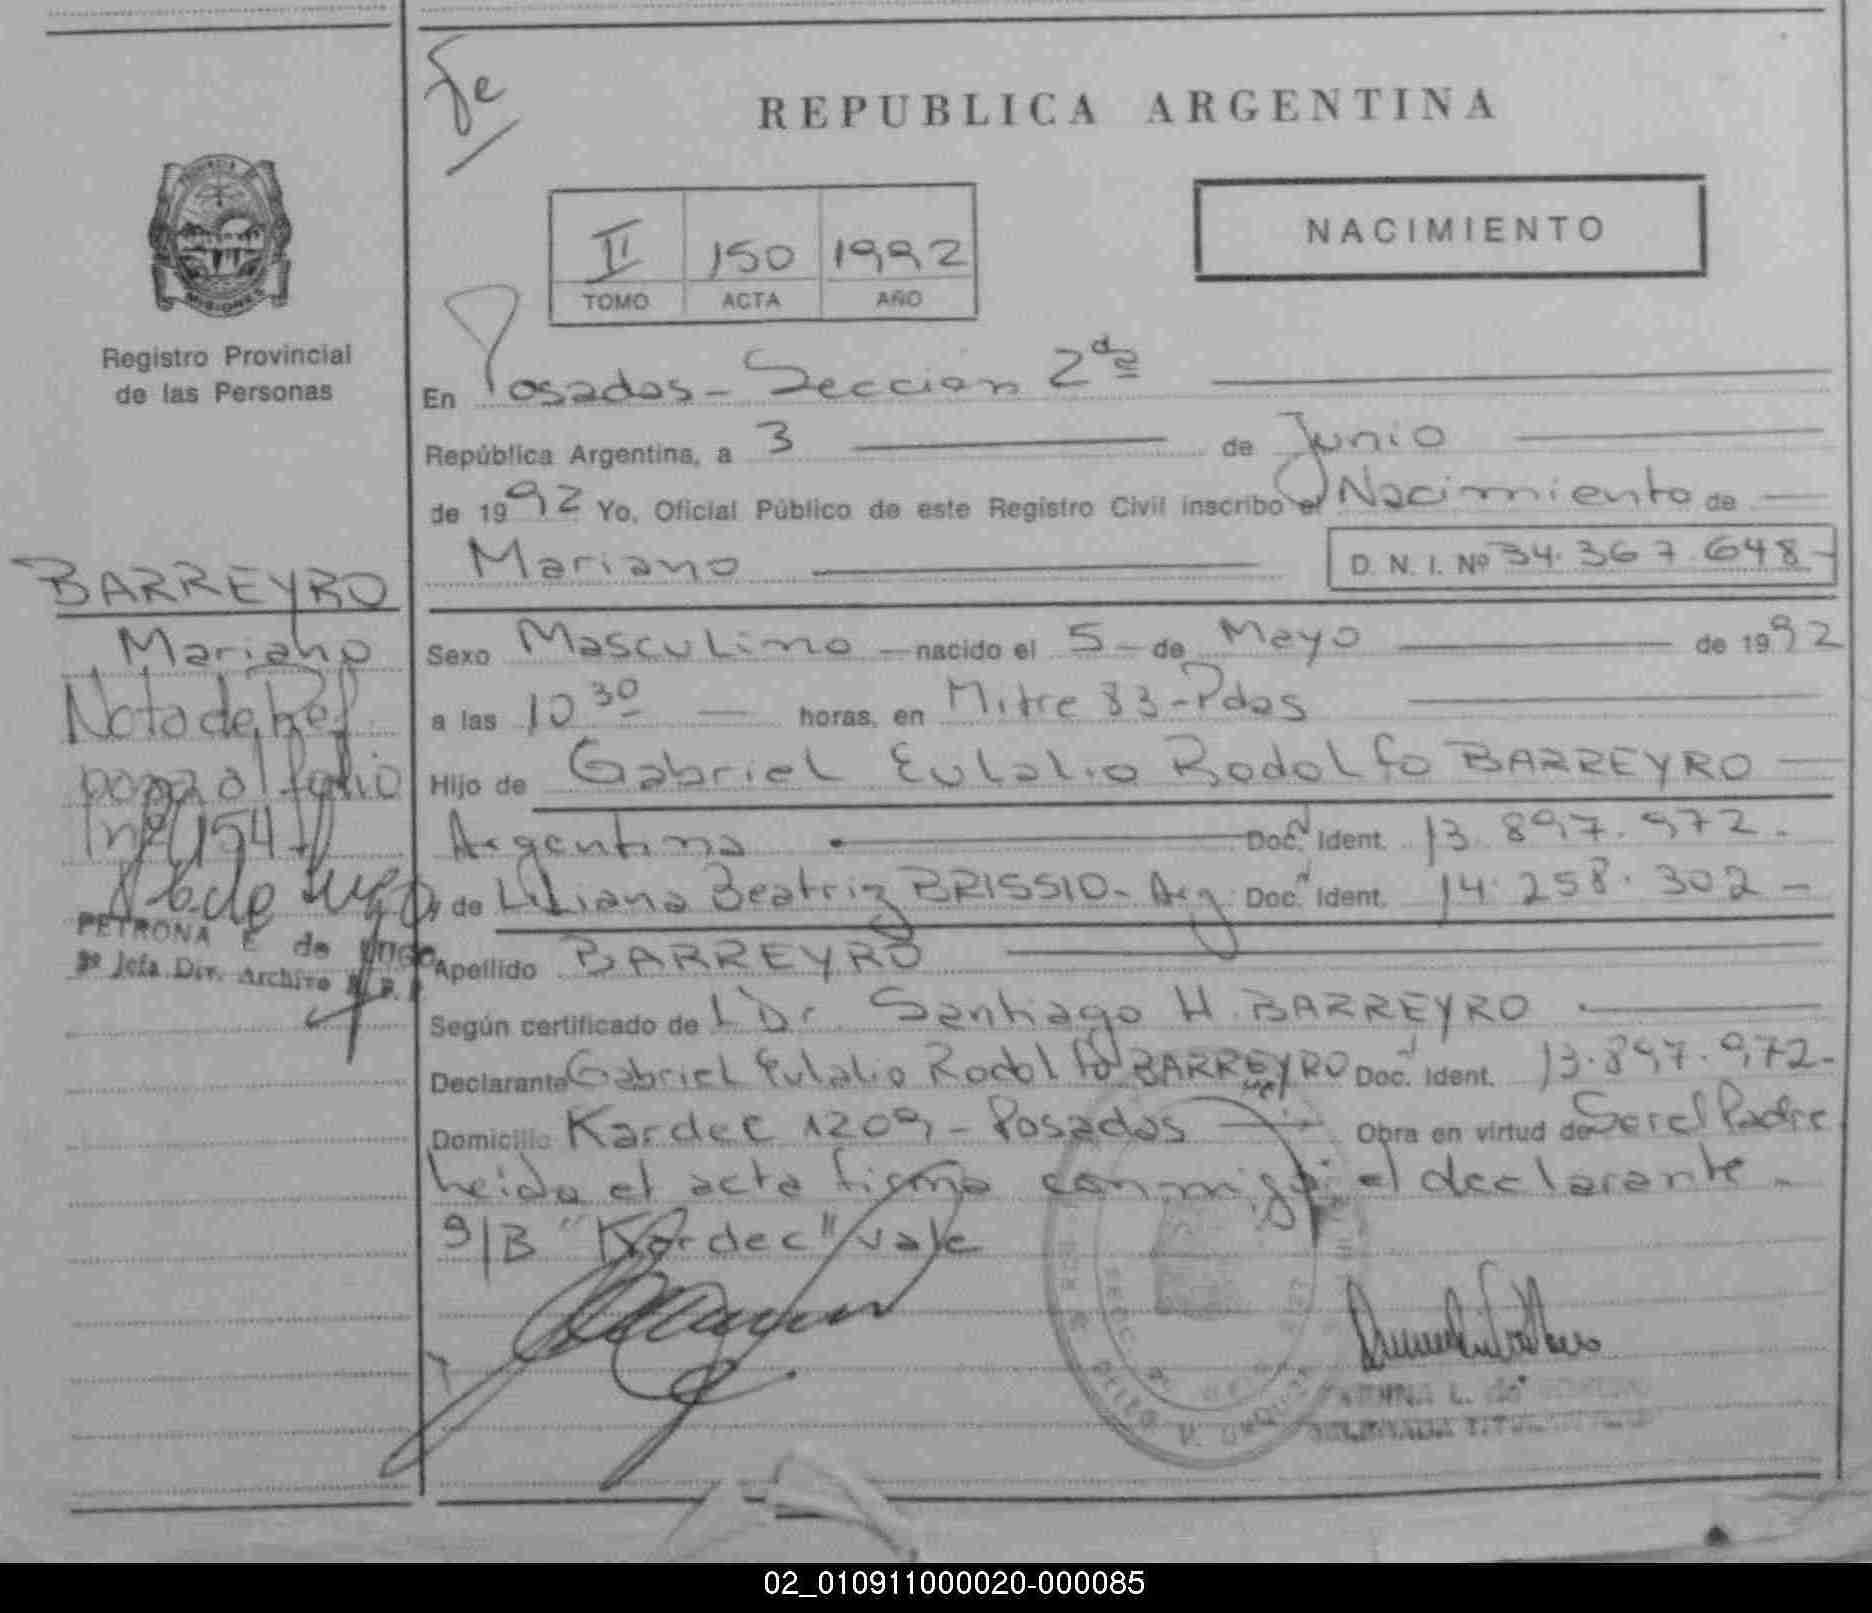 Fe
REPUBLICA ARGENTINA
NACIMIENTO
II 150 1992
TOMO ACTA AÑO
MISIONES
Registro Provincial
de las Personas
En Posadas - Seccion 2da
República Argentina, a 3 de Junio
de 1992 Yo, Oficial Público de este Registro Civil inscribo el Nacimiento de
Mariano D. N. I. Nº 34.367.648-
BARREYRO
Mariano
Nota de Ref
pasa al folio
nº 154
PETRONA E de
Jefa Div. Archivo R. P.
Sexo Masculino - nacido el 5 - de Mayo de 1992
a las 10 30 horas, en Mitre 83 - Pdas
Hijo de Gabriel Eulalio Rodolfo BARREYRO
Argentina Doc. Ident. 13.897.972.
y de Liliana Beatriz BRISSIO - Arg. Doc. Ident. 14.258.302 -
Apellido BARREYRO
Según certificado de l Dr. Santiago H. BARREYRO
Declarante Gabriel Eulalio Rodolfo BARREYRO Doc. Ident. 13.897.972-
Domicilio Kardec 1209 - Posadas Obra en virtud de Ser el Padre
Leida el acta firma conmigo el declarante -
S/B "Kardec" vale
02_010911000020-000085